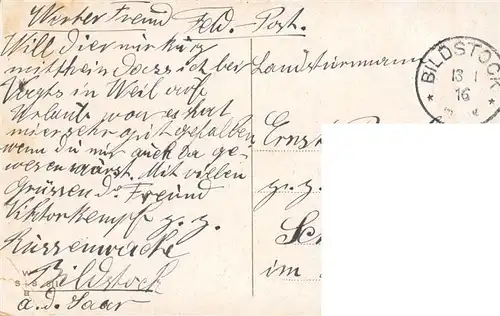 Werter Freund Feld-Post.
Will dier nur kurz
mittheln dass ich bei
Vogts in Weil auf
Urlaub war es hat
mier sehr gut gefallen
wenn du nur auch da ge-
wesen wärst. Mit vielen
Grüssen dein Freund
Viktor Kempf z. Z.
Russenwache
Bildstock
a. d. Saar
Landsturmmann
Ernst
z. Z.
im
BILDSTOCK
13 1
16